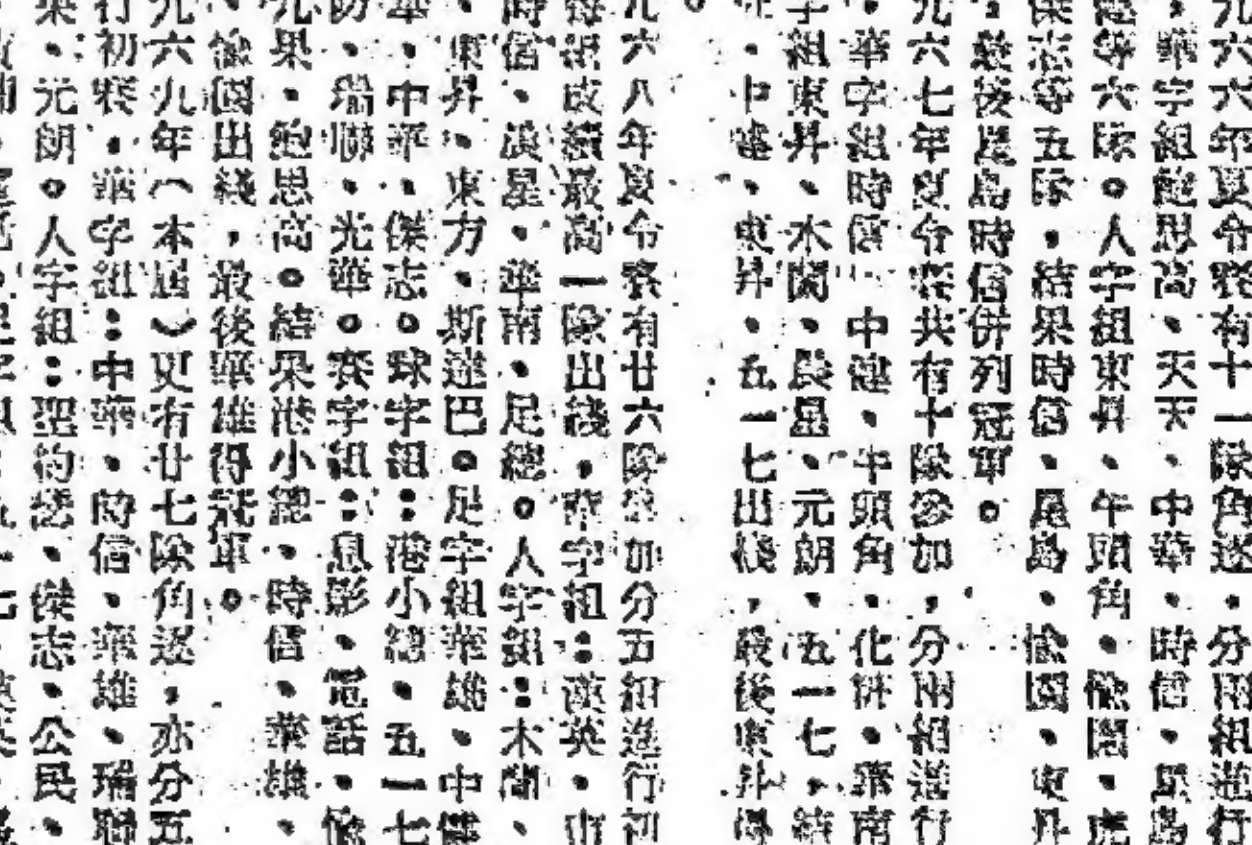 六六年度令賽有十一隊角逐，分兩組進行
華字組鮑思高、天天、中華、時信、星島
等六隊。人字組東昇、牛頭角、愉園、虎
傑志等五隊，結果時信、星島、愉園、東昇
最後星島時信併列冠軍。
六七年度令賽共有十隊參加，分兩組進行
華字組時信、中健、牛頭角、化研、華南
字組東昇、木閣、良星、元朗、五一七，結
、中健、東昇、五一七出綫，最後東昇得
六八年度令賽有廿六隊參加分五組進行初
每組成績最高一隊出綫，華字組：漢英、市
時信、漢星、華南、足總。人字組：木閣、
東昇、東方、斯達巴。足字組華雄、中健
、中華、傑志。球字組：港小總、五一七
、瑞聯、光華。賽字組：息影、電話、愉
果、鮑思高。結果港小總、時信、華雄、
愉園出綫，最後華雄得冠軍。
六九年（本屆）更有廿七隊角逐，亦分五
行初賽，華字組：中華、時信、華雄、瑞聯
、元朗。人字組：聖約瑟、傑志、公民、